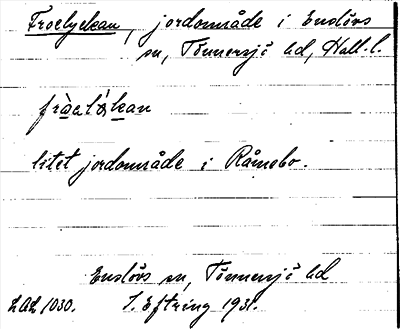 Froelyckan, jordområde i Enslövs
sn, Tönnersjö hd, Hall. l.
litet jordområde i Råmebo.
Enslövs sn, Tönnersjö hd
LAL 1030. S. Eftring 1931.